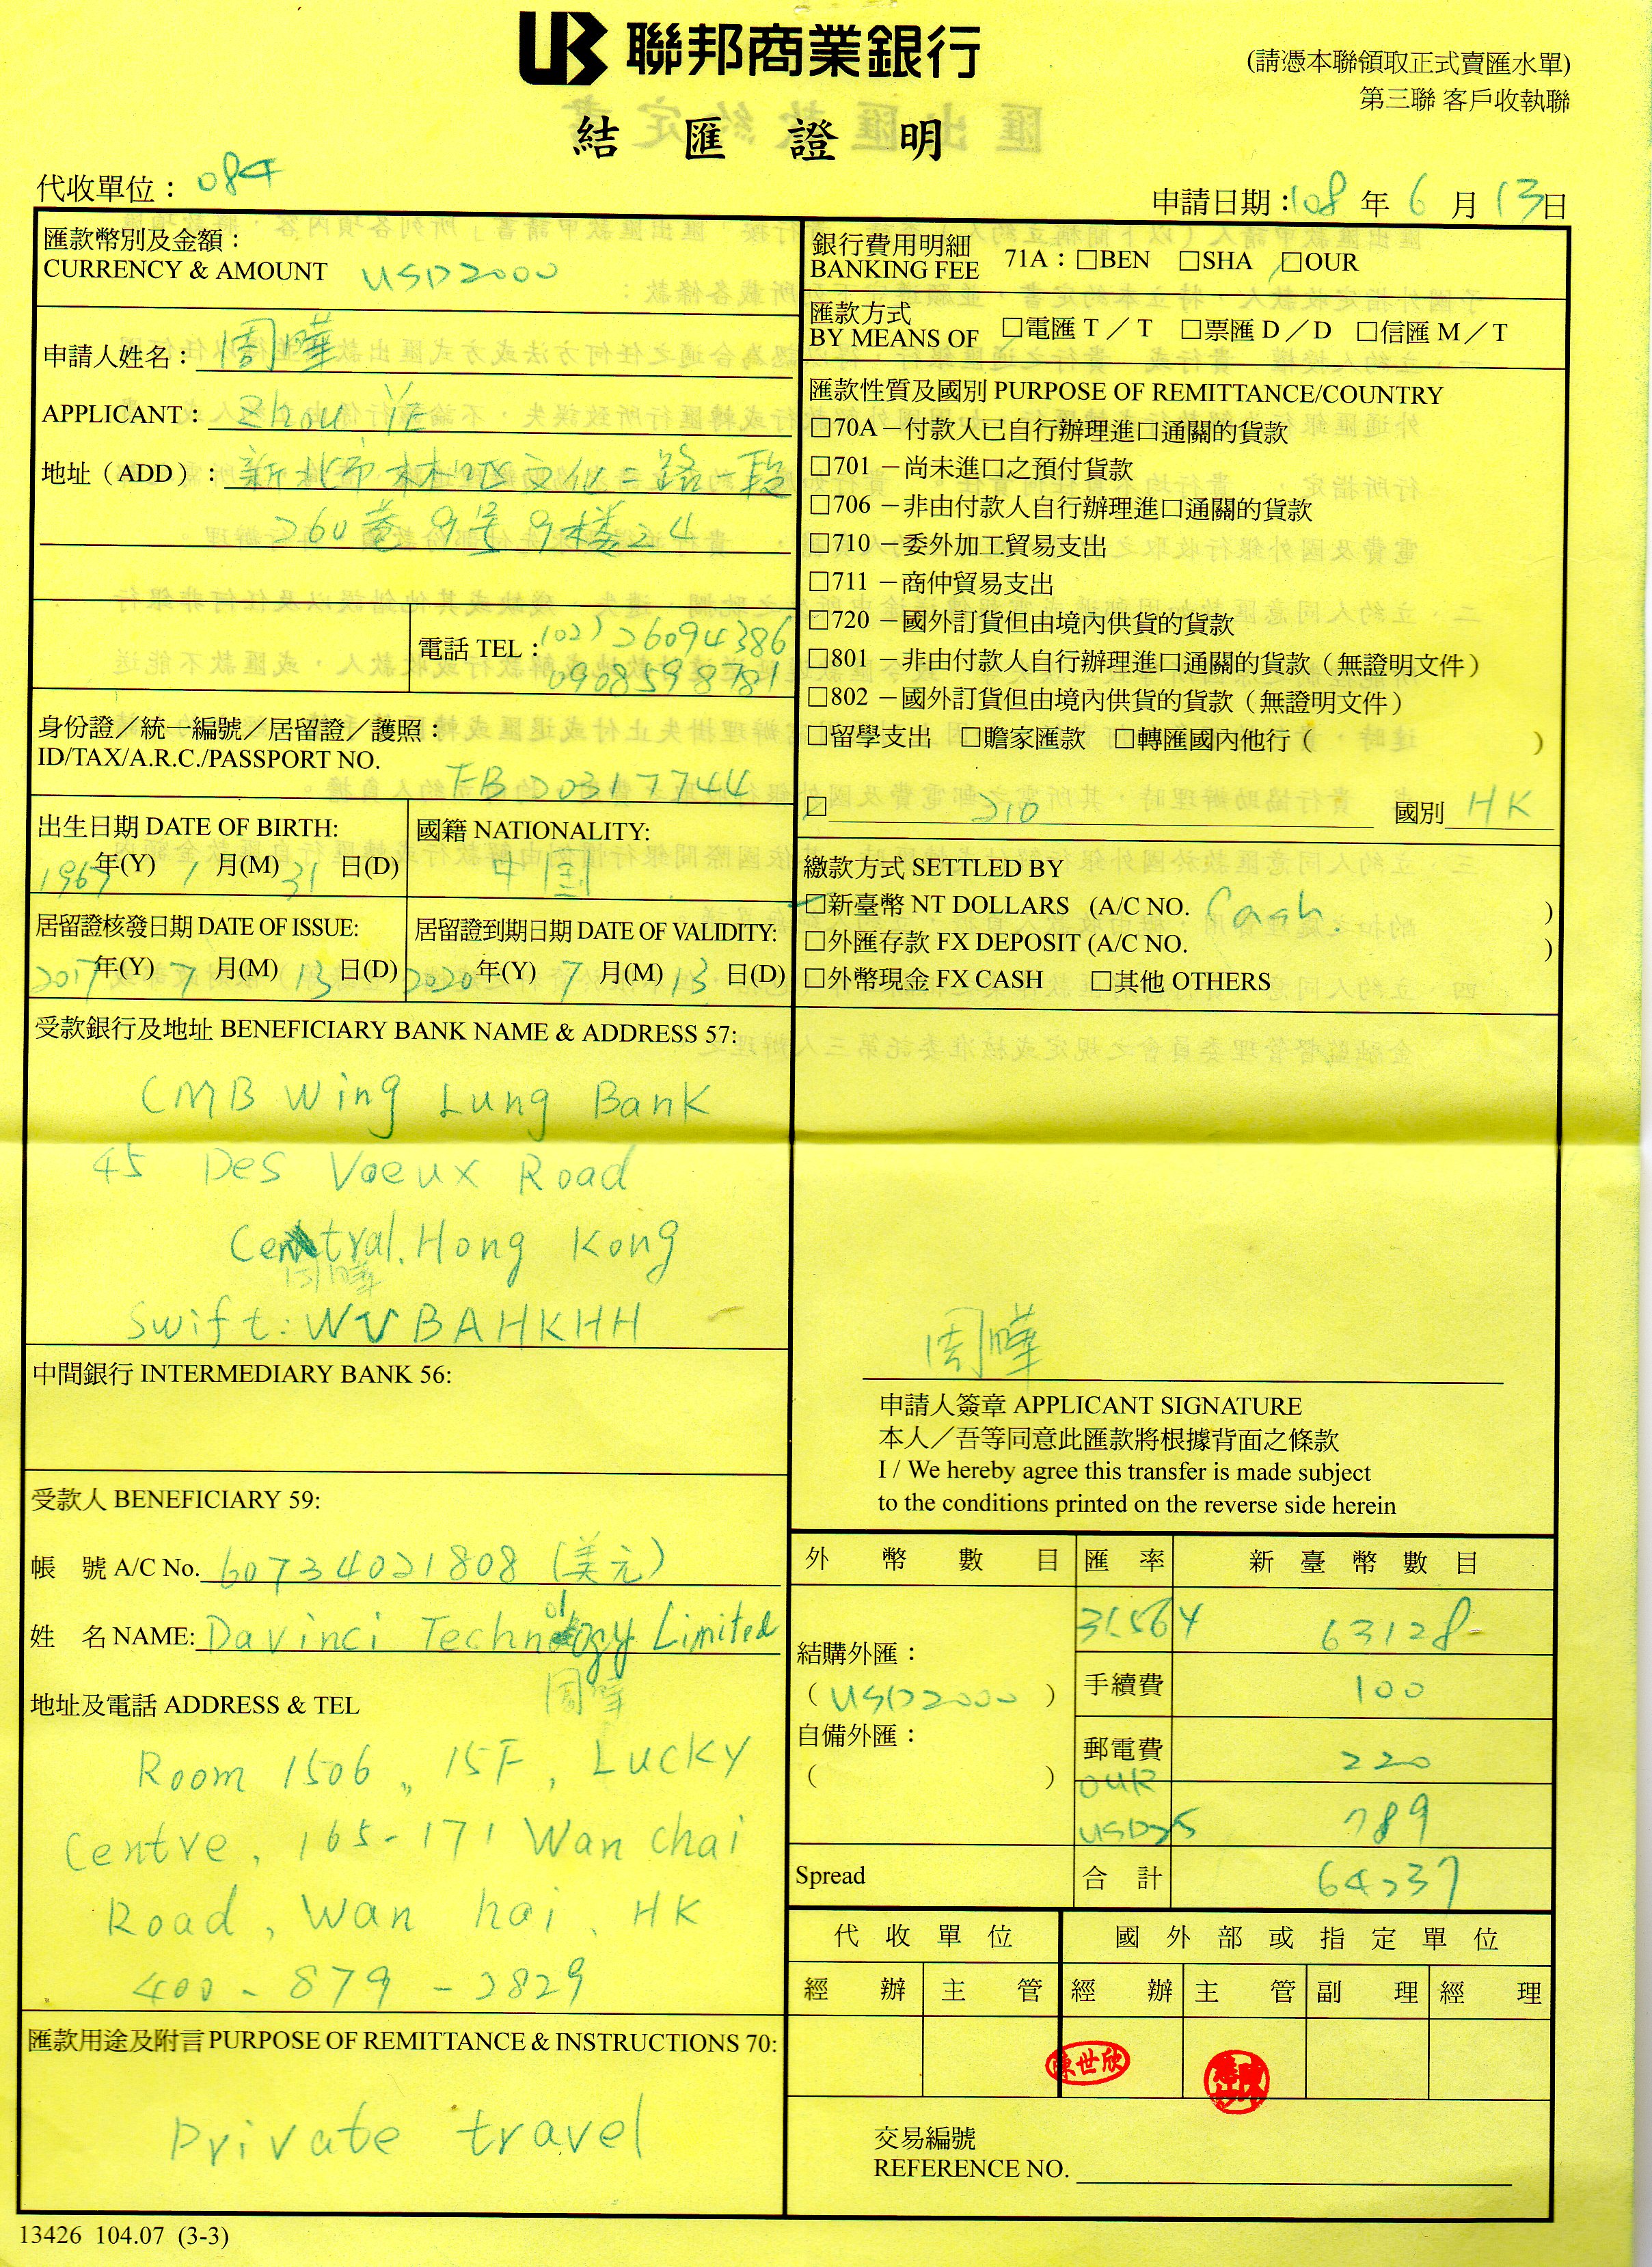 聯邦商業銀行
(請憑本聯領取正式賣匯水單)
第三聯 客戶收執聯
結匯證明
代收單位：084
申請日期：108年6月13日
匯款幣別及金額：
CURRENCY & AMOUNT USD2000
申請人姓名：周曄
APPLICANT：Zhou Ye
地址（ADD）：新北市林口区文化二路一段
260巷9号9楼之4
電話 TEL：(02) 26094386
0908598781
身份證／統一編號／居留證／護照：
ID/TAX/A.R.C./PASSPORT NO.
FBD0317744
出生日期 DATE OF BIRTH:
1967年(Y) 1月(M) 31日(D)
國籍 NATIONALITY:
中國
居留證核發日期 DATE OF ISSUE:
2017年(Y) 7月(M) 13日(D)
居留證到期日期 DATE OF VALIDITY:
2020年(Y) 7月(M) 13日(D)
受款銀行及地址 BENEFICIARY BANK NAME & ADDRESS 57:
CMB Wing Lung Bank
45 Des Voeux Road
Central. Hong Kong
周曄
Swift: WUBAHKHH
中間銀行 INTERMEDIARY BANK 56:
受款人 BENEFICIARY 59:
帳 號 A/C No. 60734021808 (美元)
姓 名 NAME: Davinci Technology Limited
周曄
地址及電話 ADDRESS & TEL
Room 1506, 15F, Lucky
Centre, 165-171 Wan chai
Road, Wan hai, HK
400-879-2829
匯款用途及附言 PURPOSE OF REMITTANCE & INSTRUCTIONS 70:
Private travel
13426 104.07 (3-3)
銀行費用明細
BANKING FEE 71A：□BEN □SHA □OUR
匯款方式
BY MEANS OF □電匯 T／T □票匯 D／D □信匯 M／T
匯款性質及國別 PURPOSE OF REMITTANCE/COUNTRY
□70A－付款人已自行辦理進口通關的貨款
□701－尚未進口之預付貨款
□706－非由付款人自行辦理進口通關的貨款
□710－委外加工貿易支出
□711－商仲貿易支出
□720－國外訂貨但由境內供貨的貨款
□801－非由付款人自行辦理進口通關的貨款（無證明文件）
□802－國外訂貨但由境內供貨的貨款（無證明文件）
□留學支出 □贍家匯款 □轉匯國內他行（ ）
□ 210 國別 HK
繳款方式 SETTLED BY
□新臺幣 NT DOLLARS (A/C NO. Cash. )
□外匯存款 FX DEPOSIT (A/C NO. )
□外幣現金 FX CASH □其他 OTHERS
周曄
申請人簽章 APPLICANT SIGNATURE
本人／吾等同意此匯款將根據背面之條款
I / We hereby agree this transfer is made subject
to the conditions printed on the reverse side herein
外幣數目 匯率 新臺幣數目
31.564 63128
結購外匯：
（USD2000）
手續費 100
自備外匯：
（ ）
郵電費 220
OUR
USD25 789
Spread 合計 64237
代收單位 國外部或指定單位
經辦 主管 經辦 主管 副理 經理
陳世欣
交易編號
REFERENCE NO.